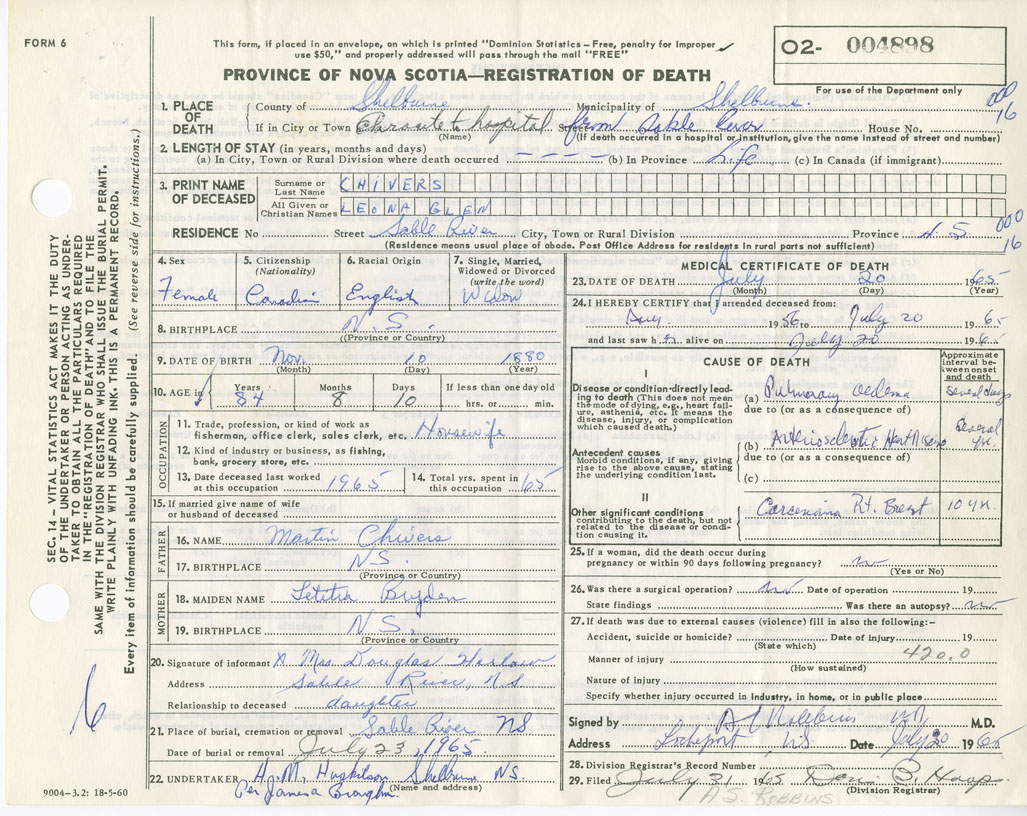 FORM 6
This form, if placed in an envelope, on which is printed "Dominion Statistics – Free, penalty for improper
use $50," and properly addressed will pass through the mail "FREE"
O2- 004898
For use of the Department only
PROVINCE OF NOVA SCOTIA—REGISTRATION OF DEATH
1. PLACE OF DEATH County of Shelburne Municipality of Shelburne.
000
16
If in City or Town hospital Street from Sable River House No.
(Name) (If death occurred in a hospital or institution, give the name instead of street and number)
2. LENGTH OF STAY (in years, months and days)
(a) In City, Town or Rural Division where death occurred – – – – (b) In Province Life (c) In Canada (if immigrant)
3. PRINT NAME OF DECEASED
Surname or Last Name CHIVERS
All Given or Christian Names LEONA GLEN
RESIDENCE No Street Sable River City, Town or Rural Division Province N.S.
000
16
(Residence means usual place of abode. Post Office Address for residents in rural parts not sufficient)
4. Sex Female
5. Citizenship (Nationality) Canadian
6. Racial Origin English
7. Single, Married, Widowed or Divorced (write the word) Widow
8. BIRTHPLACE N.S.
(Province or Country)
9. DATE OF BIRTH Nov. 10 1880
(Month) (Day) (Year)
10. AGE in Years 84 Months 8 Days 10 If less than one day old hrs. or min.
OCCUPATION
11. Trade, profession, or kind of work as
fisherman, office clerk, sales clerk, etc. Housewife
12. Kind of industry or business, as fishing,
bank, grocery store, etc.
13. Date deceased last worked at this occupation 1965
14. Total yrs. spent in this occupation 65
15. If married give name of wife
or husband of deceased
FATHER
16. NAME Martin Chivers
17. BIRTHPLACE N.S.
(Province or Country)
MOTHER
18. MAIDEN NAME Letitia
19. BIRTHPLACE N.S.
(Province or Country)
20. Signature of informant Mrs. Douglas
Address Sable River, N.S
Relationship to deceased daughter
21. Place of burial, cremation or removal Sable River NS
Date of burial or removal July 23, 1965
22. UNDERTAKER H. M. Huskilson Shelburne N.S.
(Name and address)
Per James
MEDICAL CERTIFICATE OF DEATH
23. DATE OF DEATH July 20 1965
(Month) (Day) (Year)
24. I HEREBY CERTIFY that I attended deceased from:
1956 to July 20 1965
and last saw h alive on July 20 196
CAUSE OF DEATH
Approximate interval between onset and death
I
Disease or condition directly leading to death (This does not mean the mode of dying, e.g., heart failure, asthenia, etc. It means the disease, injury, or complication which caused death.
(a) Pulmonary Oedema Several days
due to (or as a consequence of)
Antecedent causes
Morbid conditions, if any, giving rise to the above cause, stating the underlying condition last.
(b) Arteriosclerotic Heart Several yr.
due to (or as a consequence of)
(c)
II
Other significant conditions
contributing to the death, but not related to the disease or condition causing it.
Carcenoma Rt. Breast 10 yr.
25. If a woman, did the death occur during
pregnancy or within 90 days following pregnancy? no
(Yes or No)
26. Was there a surgical operation? no Date of operation 19
State findings Was there an autopsy? no
27. If death was due to external causes (violence) fill in also the following:–
Accident, suicide or homicide? Date of injury 19
(State which)
420.0
Manner of injury
(How sustained)
Nature of injury
Specify whether injury occurred in industry, in home, or in public place
Signed by MD M.D.
Address Lockeport N.S. Date July 20 1965
28. Division Registrar's Record Number
29. Filed July 31 1965
(Division Registrar)
A S. ROBBINS
9004-3.2: 18-5-60
SEC. 14 – VITAL STATISTICS ACT MAKES IT THE DUTY
OF THE UNDERTAKER OR PERSON ACTING AS UNDER-
TAKER TO OBTAIN ALL THE PARTICULARS REQUIRED
IN THE "REGISTRATION OF DEATH" AND TO FILE THE
SAME WITH THE DIVISION REGISTRAR WHO SHALL ISSUE THE BURIAL PERMIT.
WRITE PLAINLY WITH UNFADING INK. THIS IS A PERMANENT RECORD.
Every item of information should be carefully supplied. (See reverse side for instructions.)
6